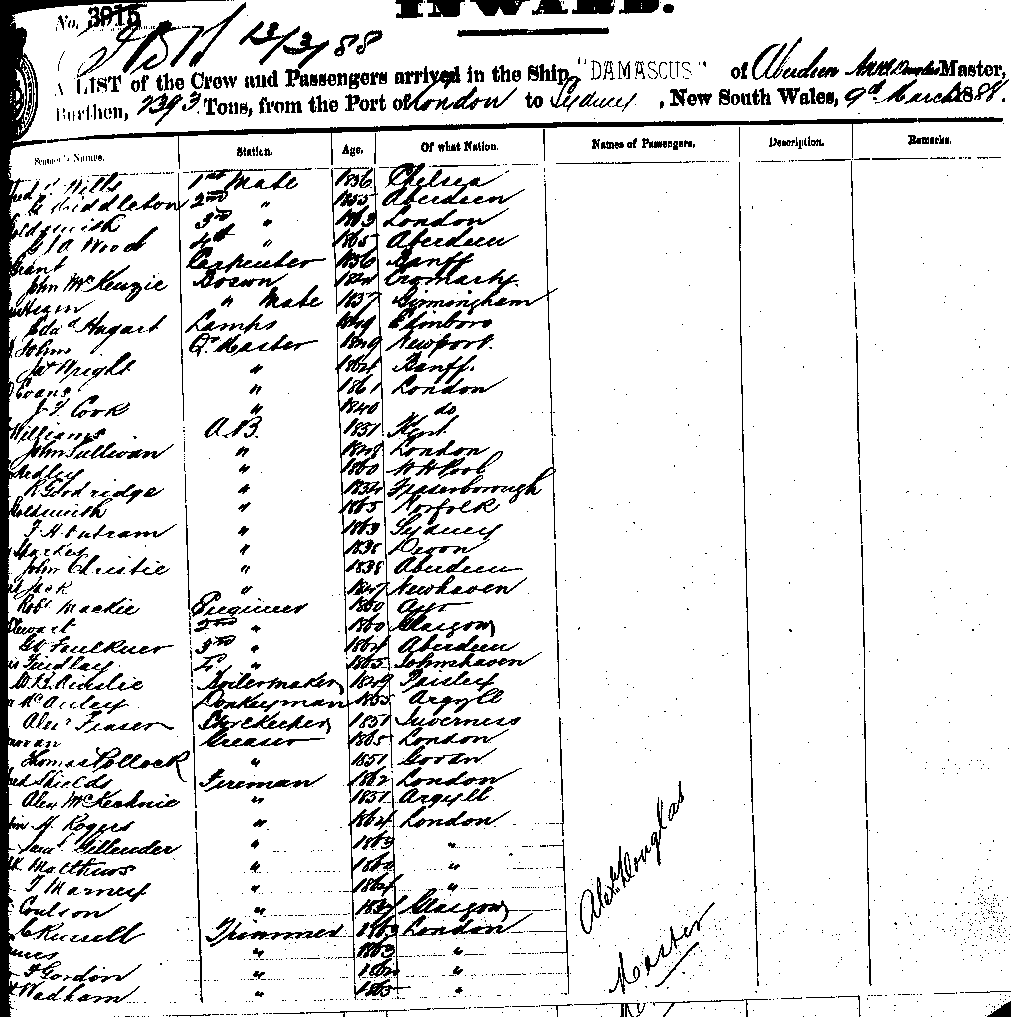 INWARD.
No. 3915
13/3/88
A LIST of the Crew and Passengers arrived in the Ship "DAMASCUS" of Aberdeen Master,
Burthen, 2393 Tons, from the Port of London to Sydney, New South Wales, 9th March 1888.
Names. Station. Age. Of what Nation. Names of Passengers. Description. Remarks.
Wills 1st Mate 1856 Chelsea
Middleton 2nd " 1855 Aberdeen
3rd " 1863 London
Wood 4th " 1865 Aberdeen
Grant Carpenter 1856 Banff
John McKenzie Boswn Cromarty
" Mate 1837 Birmingham
Hagart Lamps Edinboro
Johns Qr Master Newport.
Jas Wright " Banff.
Evans " 1861 London
J. F. Cook " 1840 do
Williams A.B. 1851 Kent
John Sullivan " London
Ardley " 1860 W H Pool
R Goodridge " Fraserborough
Goldsmith " 1865 Norfolk
" 1863 Sydney
Sharkes " 1838 Devon
John Christie " 1838 Aberdeen
Jack " 1847 Newhaven
Robt Mackie Engineer 1860 Ayr
Stewart 2nd " 1860 Glasgow
Faulkner 3rd " 1864 Aberdeen
Findlay " 1865 Johnshaven
W. B. Ainslie Boilermaker 1849 Paisley
McAuley Donkeyman 1855 Argyll
Alex Fraser Storekeeper 1851 Inverness
Greaser 1865 London
Thomas Pollock " 1851 Govan
Shields Fireman 1862 London
Alex McKechnie " 1851 Argyll
Rogers " 1864 London
Saml Gillender " 1863 "
Matthews " 1860 "
T Marney " 1864 "
Coulson " Glasgow
Russell Trimmer 1863 London
" 1863 "
F Gordon " "
Wadham " 1865 "
Alex Douglas
Master